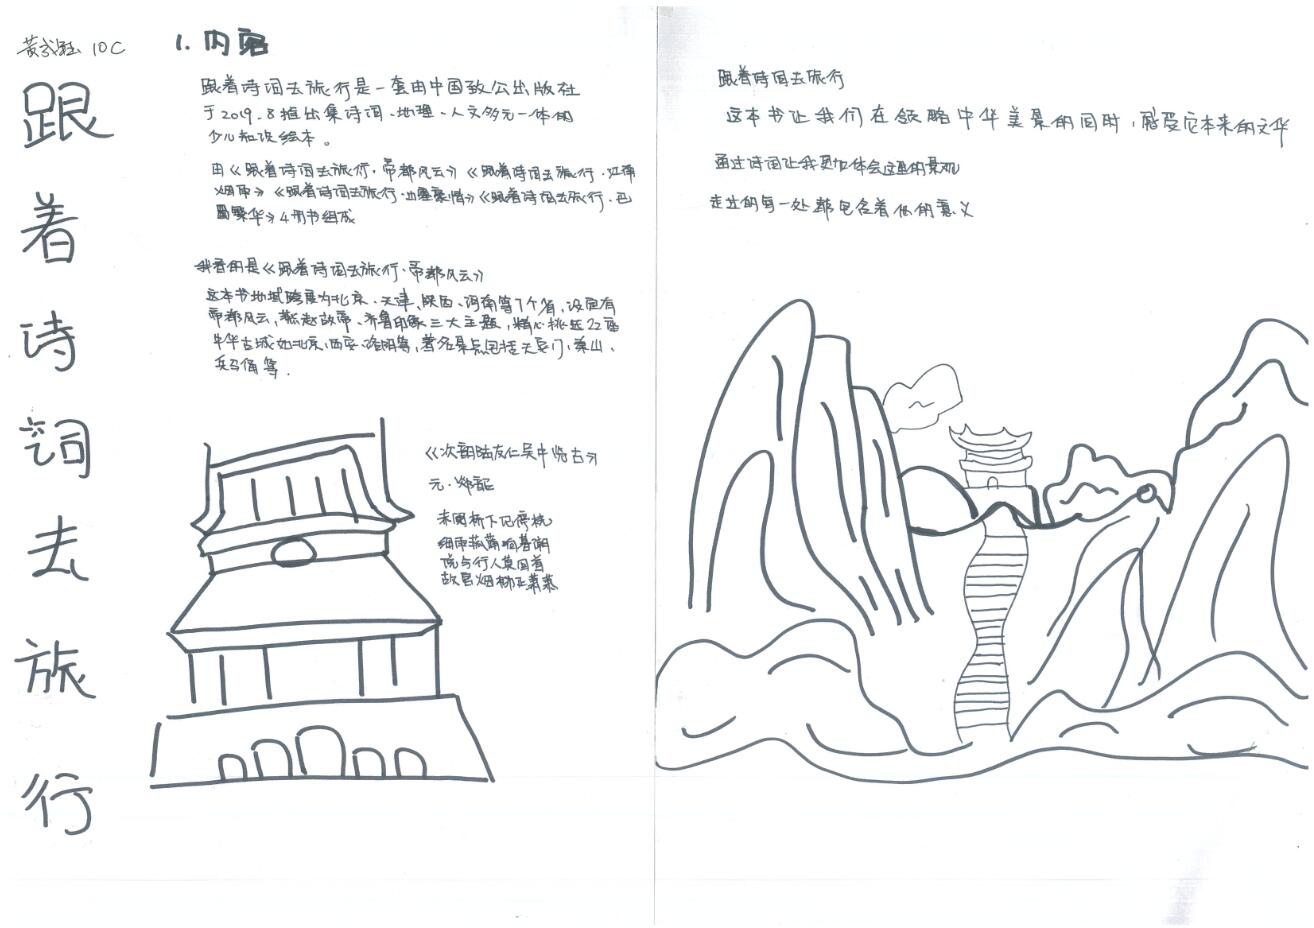 黄 钰 10C
跟着诗词去旅行
1. 内容
跟着诗词去旅行是一套由中国致公出版社
于2019.8推出集诗词、地理、人文多元一体的
少儿知识绘本。
由《跟着诗词去旅行·帝都风云》《跟着诗词去旅行·江南
烟雨》《跟着诗词去旅行·边塞豪情》《跟着诗词去旅行·巴
蜀繁华》4册书组成
我看的是《跟着诗词去旅行·帝都风云》
这本书地域跨度为北京、天津、陕西、河南等7个省,设置有
帝都风云,燕赵故事、齐鲁印象三大主题,精心挑选22座
中华古城如北京,西安、洛阳等,著名景点包括天安门,泰山,
兵马俑等.
《次韵陆友仁吴中览古》
元·郑韶
来围桥下记停桡
细雨菰蒲响暮潮
说与行人莫回首
故宫烟柳正萧萧
跟着诗词去旅行
这本书让我们在领略中华美景的同时,感受它本来的文华
通过诗词让我更加体会这里的景观
走过的每一处都包含着他的意义